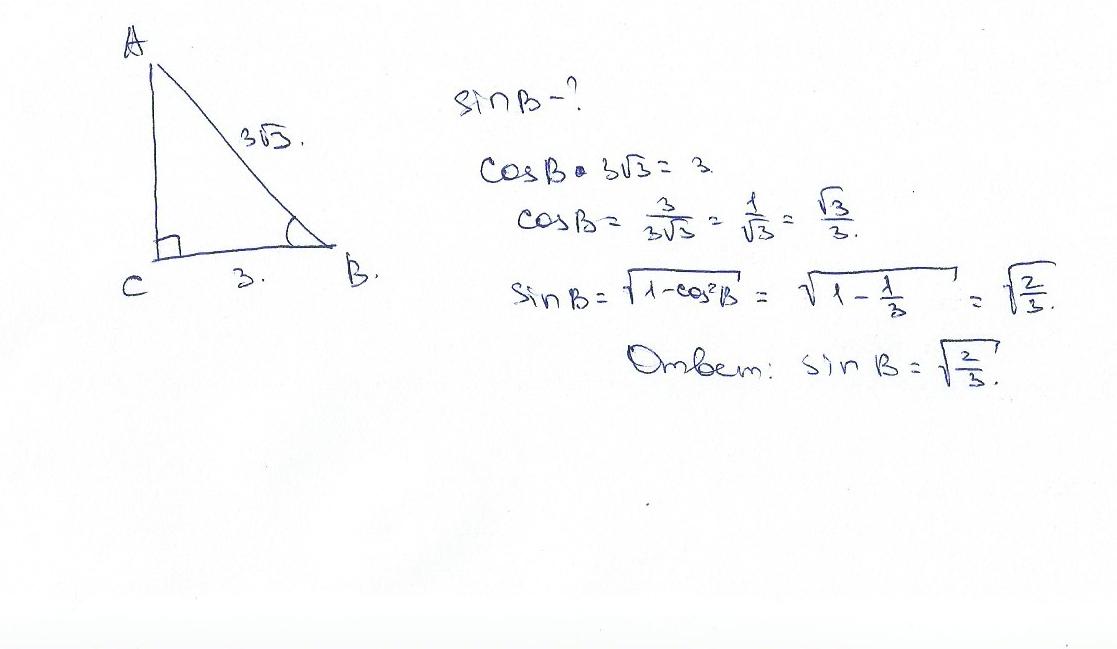 A
3√3.
C
3.
B.
sinB-?
cosB • 3√3 = 3
cosB = 3/(3√3) = 1/√3 = √3/3.
sinB = √(1-cos²B) = √(1-1/3) = √(2/3).
Ответ: sin B = √(2/3).